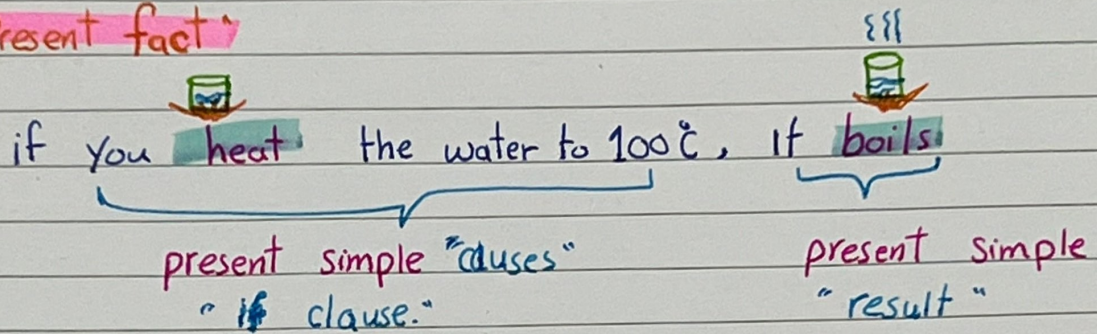 resent fact
if you heat the water to 100°C, If boils
present simple "causes" present simple
"if clause." "result"